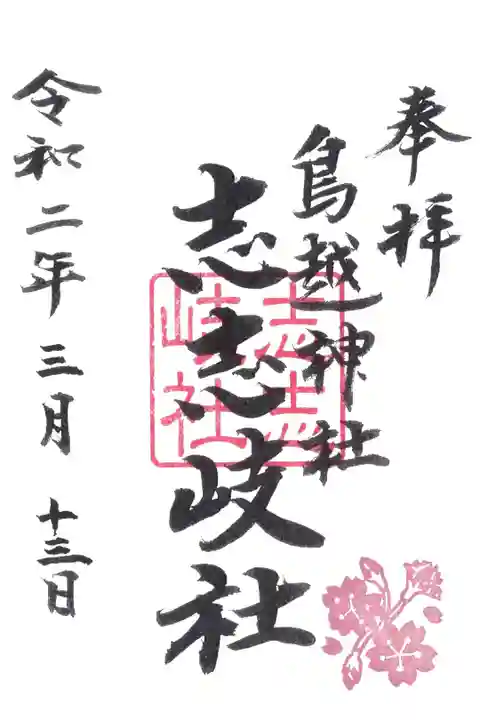 奉拝
鳥越神社
志志岐社
志志
岐社
令和二年 三月 十三日